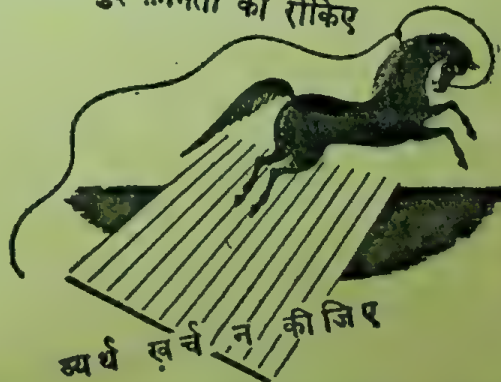 क़ीमतों को रोकिए
व्यर्थ ख़र्च न कीजिए